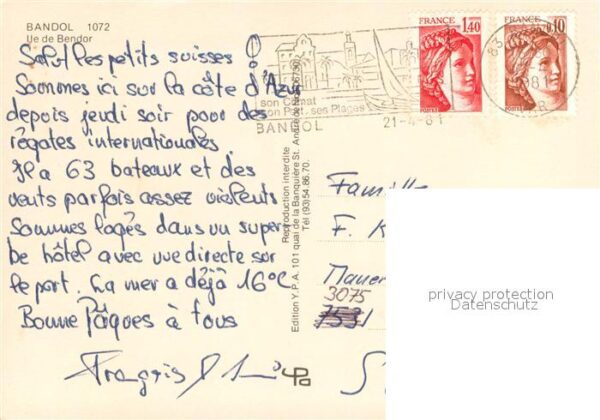 BANDOL 1072
Ile de Bendor
Salut les petits suisses !
Sommes ici sur la côte d'Azur
depuis jeudi soir pour des
régates internationales.
Il a 63 bateaux et des
vents parfois assez violents
Sommes logés dans un super
be hôtel avec vue directe sur
le port. La mer a déjà 16°C
Bonne Pâques à tous
François
son Climat
son Port, ses Plages
BANDOL
21-4-81
FRANCE
1,40
FRANCE
0,10
83
Reproduction interdite
Edition Y.P.A. 101 quai de la Banquière St. André de Nice
Tél (93) 54.86.70.
Famille
F. K
3075
privacy protection
Datenschutz